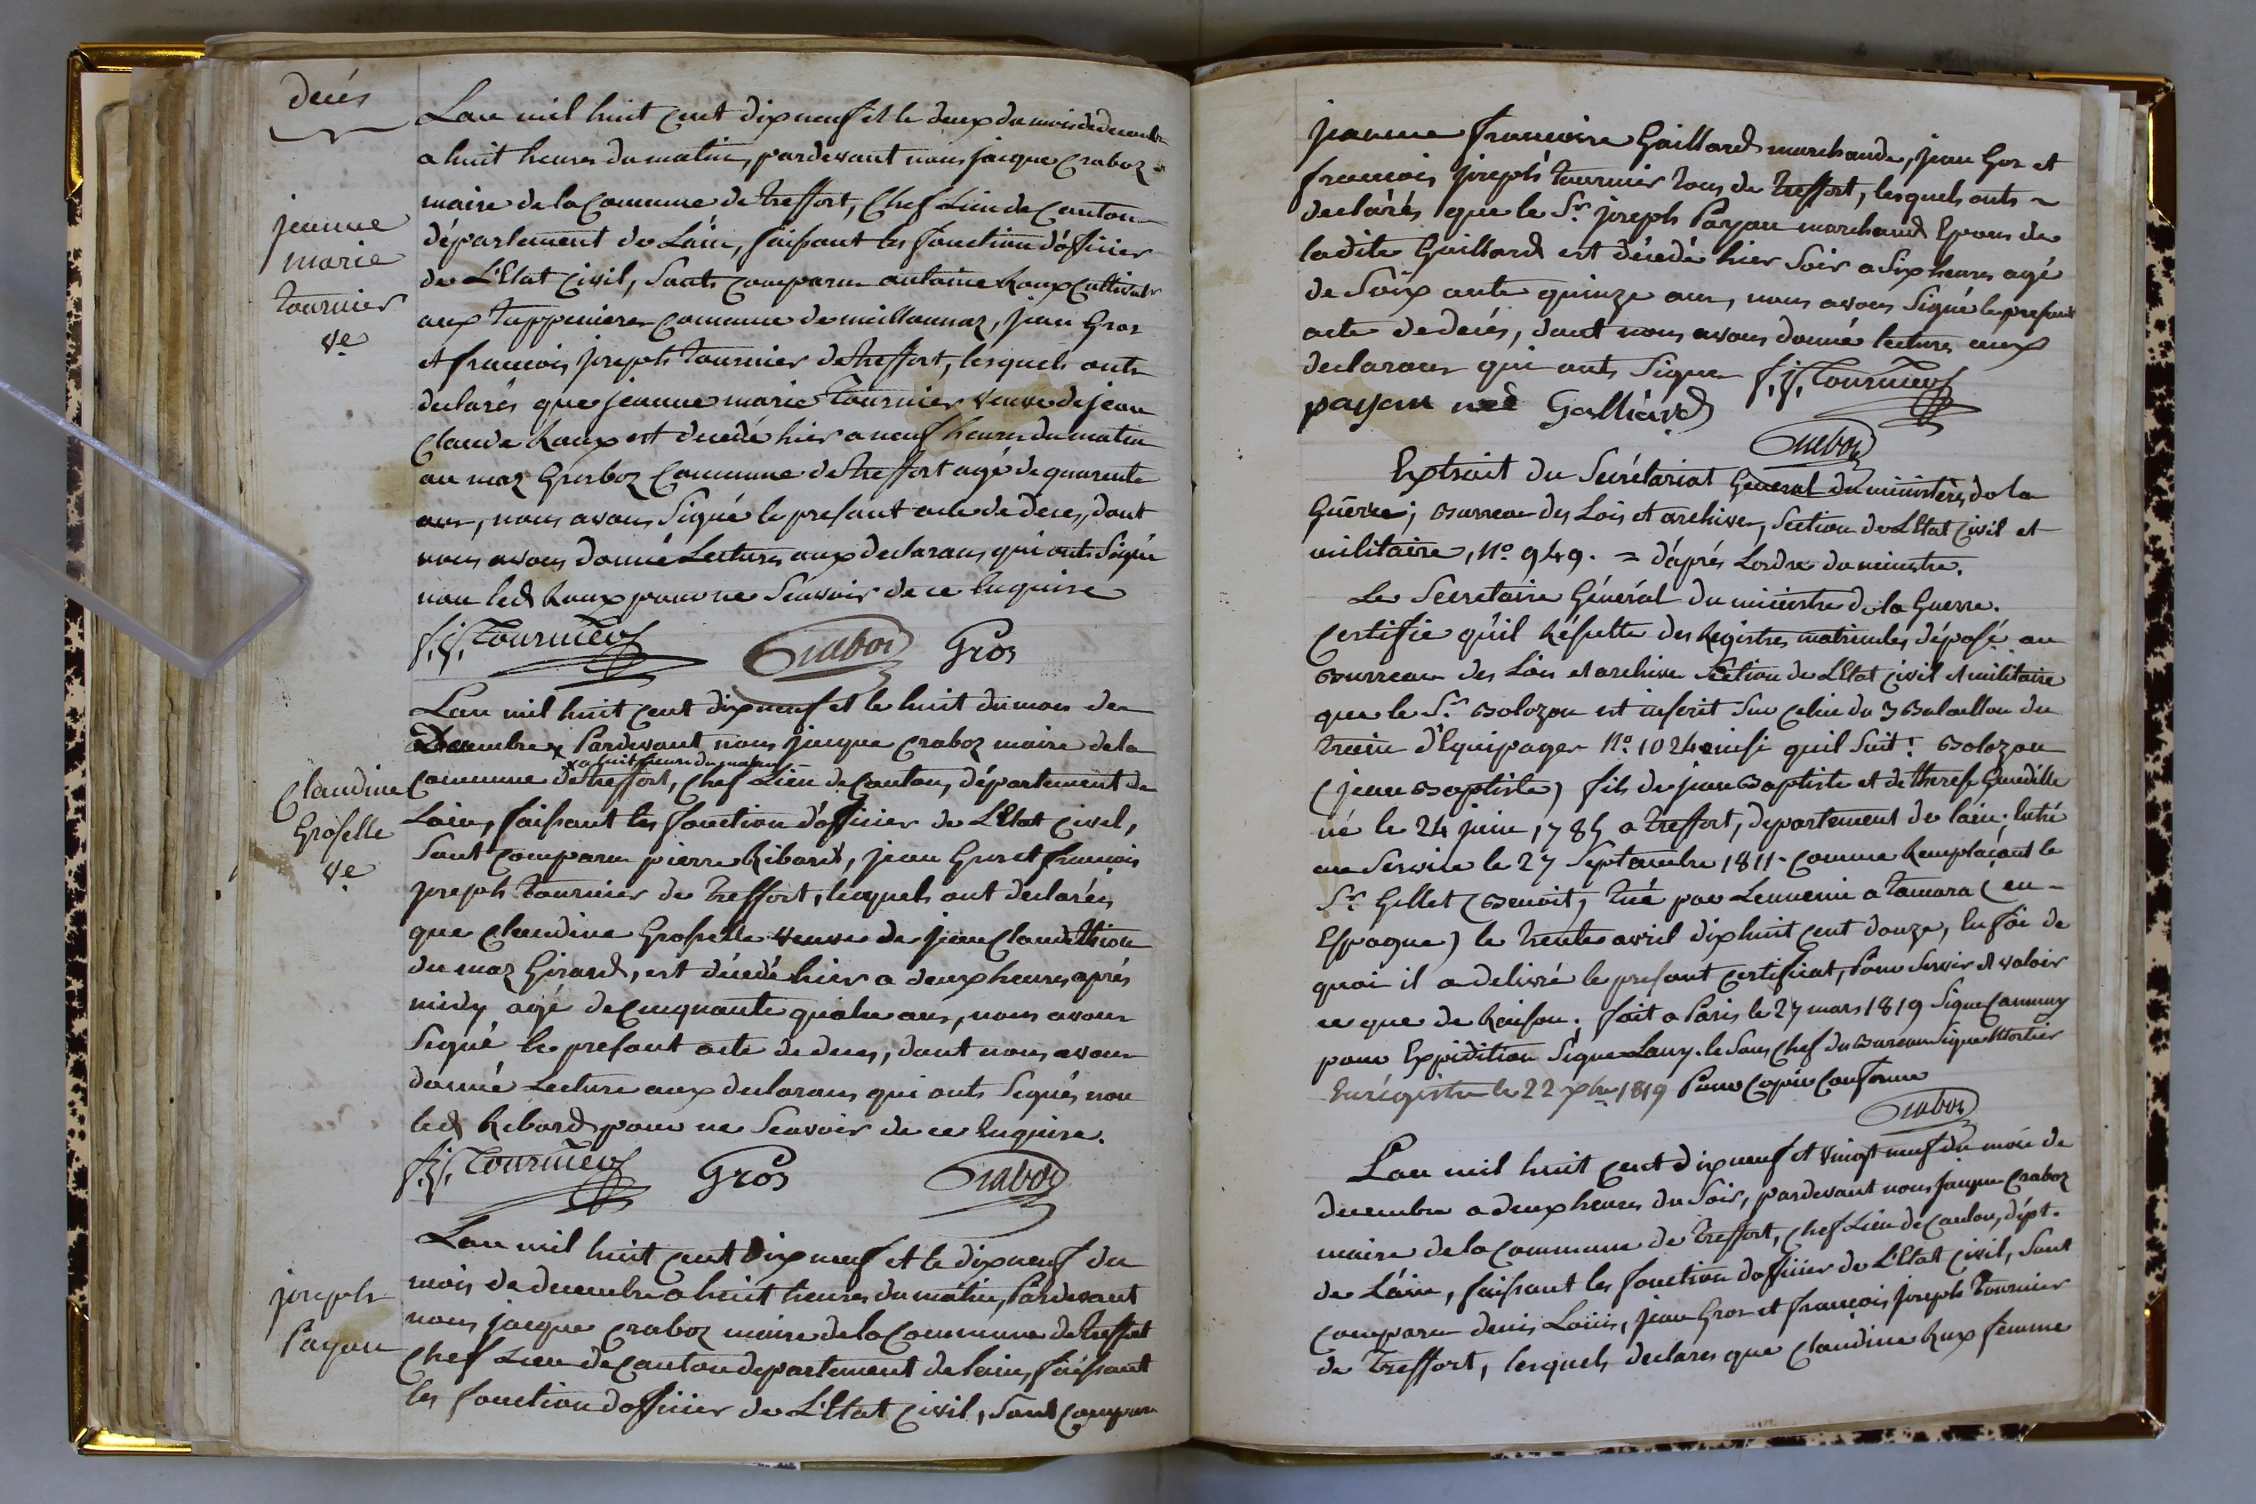 decés
Lan mil huit cent dix neuf et le deux du mois de decembre
a huit heures du matin, pardevant nous jacque Craboz
maire de la Commune de treffort, Chef Lieu de Canton
département de Lain, faissant les fonction d'officier
jeanne
marie
tournier
ve
de L'Etat Civil, sonts comparu antoine Roux Cultivatr
aux tuppinieres Commune de meillonnaz, jean Gros
et francois joseph tournier de treffort, lesquels onts
declarés que jeanne marie tournier veuve de jean
Claude Roux est decedé hier a neuf heures du matin
au maz Grosboz Commune de treffort agé de quarente
ans, nous avons Signé le presant acte de deces, dont
nous avons donné Lectures aux declarans, qui onts Signé
non led Roux pour ne Scavoir de ce Enquire
f. j. Tournier Crabos Gros
Lan mil huit cent dix neuf et le huit du mois de
Decembre x Pardevant nous jacque Craboz maire de la
x a huit heure du matin
Commune de treffort, Chef Lieu de Canton, département de
Claudine
Groselle
ve
Lain, faissant les fonction d'officier de L'Etat Civil,
Sont Comparu pierre Ribard, jean Gros et francois
joseph tournier de treffort, lesquels ont declarés
que Claudine Groselle veuve de jean Claude
du maz Girard, est décedé hier a deux heures aprés
midy agé de Cinquante quatre ans, nous avons
Signé le presant acte de deces, dont nous avons
donné Lecture aux declarans qui onts Signés non
led Ribard pour ne Scavoir de ce Enquire.
f. j. Tournier Gros Crabos
Lan mil huit cent dix neuf et le dix neuf du
mois de decembre a huit heures du matin, Pardevant
joseph
Payan
nous jacque Craboz maire de la Commune de treffort
Chef Lieu de Canton departement de lain, faissant
les fonction d'officier de L'Etat Civil, Sont Comparu
jeanne francoise Gaillard marchande, jean Gos et
francois joseph tournier tous de treffort, lesquels onts
declarés que le Sr. joseph Payan marchand Epous de
ladite Gaillard est décedé hier Soir a Six heures agé
de Soix ante quinze ans, nous avons Signé le presant
acte de decés, dont nous avons donné lectures aux
declarans qui onts Signer f. j. Tournier
payan neè Galliard
Crabos
Extrait du Secrétariat General du ministère de la
Guerre; Burreau des Lois et archives, Section de L'Etat Civil et
militaire, No. 949. = d'aprés Lordre du ministre.
Le Secretaire Général du ministre de la Guerre.
Certifie qu'il Résulte des Registres matricules déposé au
Burreau des Lois et archive Section de L'Etat Civil et militaire
que le Sr. Bolozon est inscrit Sur Celui du 3 Bataillon du
train d'Equipages No. 1024 ainsi quil Suit: Bolozon
(jean Baptiste) fils de jean Baptiste et de therese
né le 24 juin 1785 a treffort, departement de lain; Entré
au Service le 27 Septembre 1811 - Comme Remplaçant le
Sr. Gillet (Benoit, tué par Lennemi a tamara (en -
Espagne) le trente avril dix huit cent douze, En foi de
quoi il a delivré le presant certificat, Pour Servir et valoir
ce que de Raison; fait a Paris le 27 mars 1819 Signe
pour Expidition Signe Lauy. le Sous Chef du Bureau Signe Mortier
Enrégistre le 22 xbre 1819 Pour Copie Conforme
Crabos
Lan mil huit cent dix neuf et vingt neuf du mois de
decembre a deux heures du Soir, pardevant nous jacque Craboz
maire de la Commune de treffort, Chef Lieu de Canton, dépt.
de Láin, faissant les fonction dofficier de L'Etat Civil, Sont
Comparu denis Loüis, jean Gros et françois joseph tournier
de treffort, lesquels declares que Claudine Rux femme